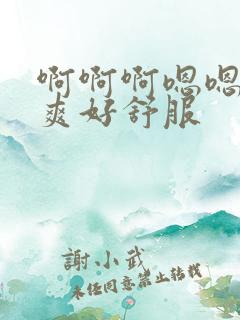 啊啊啊嗯嗯
爽好舒服
謝小武
未经同意禁止转载